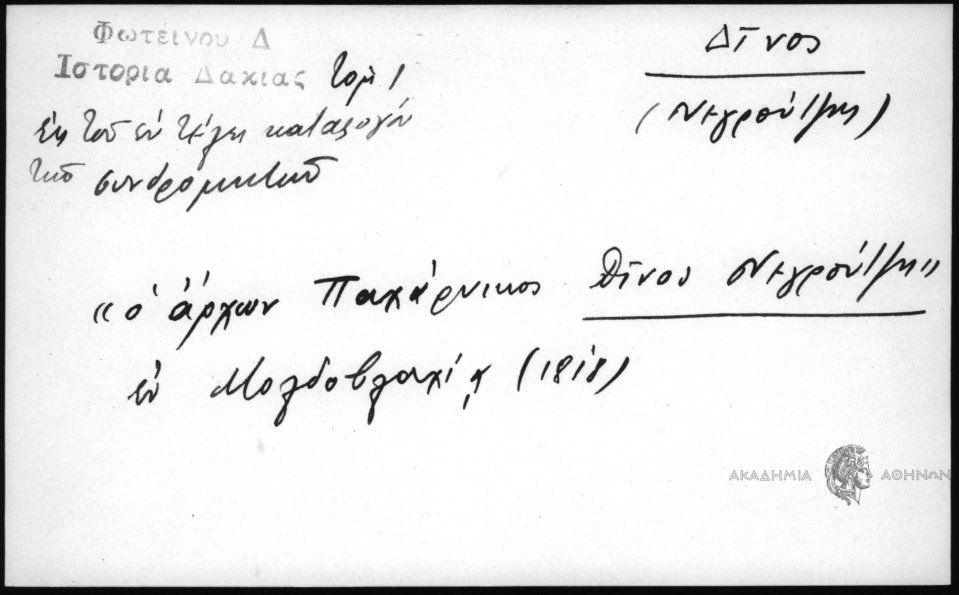 Φωτεινου Δ
Ιστορια Δακιας τομ 1
ἐκ τοῦ ἐν τέλει καταλόγου
τῶν συνδρομητῶν
Δῖνος
(Νεγρούτζης)
«ὁ ἄρχων Παχάρνικος Δῖνος Νεγρούτζης»
ἐν Μολδοβλαχίᾳ (1818)
ΑΚΑΔΗΜΙΑ ΑΘΗΝΩΝ